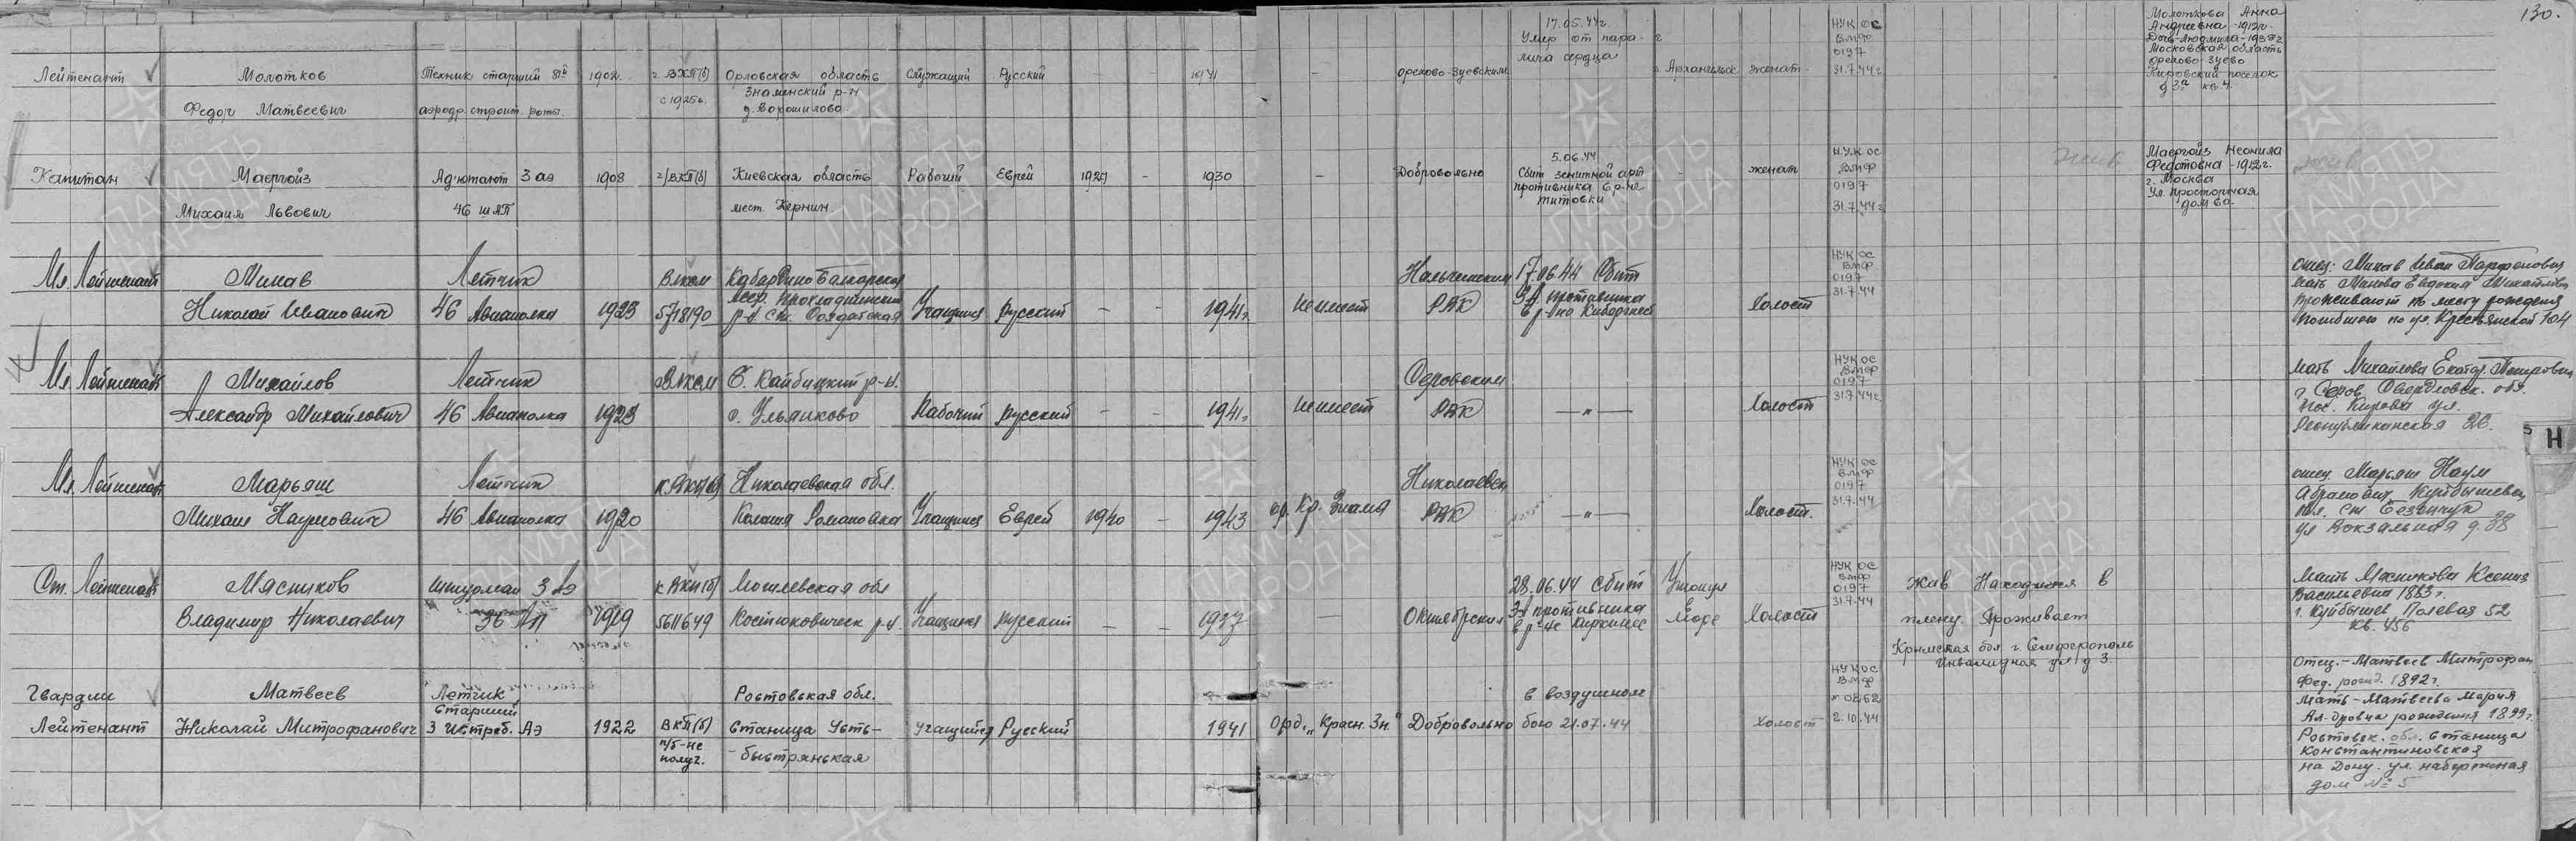 130.
Лейтенант
Молотков
Федор Матвеевич
Техник старший 81й
аэродр. строит. роты.
1902
г. ВКП(б)
с 1925г.
Орловская область
Знаменский р-н
д. Ворошилово
Служащий
Русский
-
-
1941
-
Орехово-Зуевским
17.05.44г.
Умер от пара-
лича сердца
г. Архангельск
женат
НУК ОС
ВМФ
0197
31.7.44г
Молоткова Анна
Андреевна -1912г.
Дочь-Людмила-1937г
Московская область
Орехово-Зуево
Кировский поселок
д 3а кв. 4.
Капитан
Маергойз
Михаил Львович
Адъютант 3 аэ
46 ШАП
1908
г/ВКП(б)
Киевская область
мест. Кернин.
Рабочий
Еврей
1929
-
1930
-
Добровольно
5.06.44
Сбит зенитной арт
противника в р-не
Титовки
-
женат
НУК ОС
ВМФ
0197
31.7.44г
жив
Маергойз Неонила
Федотовна -1912г.
г. Москва
Ул. Просторная
дом 60.
жив
Мл. Лейтенант
Минав
Николай Иванович
Летчик
46 Авиаполка
1923
ВЛКСМ
5718190
Кабардино Балкарская
АССР. Прохладненский
р-н ст. Солдатская
Учащийся
Русский
-
-
1941г.
не имеет
Нальчикским
РВК
17.06.44 Сбит
ЗА противника
в р-но Киркинес
Холост
НУК ОС
ВМФ
0197
31.7.44
отец: Минав Иван Парфенович
мать Минова Евдокия Михайловна
проживают по месту рождения
погибшего по ул. Крестьянской 104
Мл. Лейтенант
Михайлов
Александр Михайлович
Летчик
46 Авиаполка
1923
ВЛКСМ
Б. Кайбицкий р-н.
с. Ульянково
Рабочий
русский
-
-
1941г.
не имеет
Серовским
РВК
-"-
Холост
НУК ОС
ВМФ
0197
31.7.44г
мать Михайлова Екатер. Петровна
г. Серов Свердловск. обл.
пос. Кирова ул.
Республиканская 26.
Н
Мл. Лейтенант
Марьяш
Михаил Наумович
Летчик
46 Авиаполка
1920
к ВКП(б)
Николаевская обл.
Колония Романовка
Учащийся
Еврей
1940
-
1943
ор. Кр. Знамя
Николаевск
РВК
-"-
Холост.
НУК ОС
ВМФ
0197
31.7.44
отец. Марьяш Наум
Абрамович Куйбышевск
обл. ст. Безенчук
ул Вокзальная д. 38
Ст. Лейтенант
Мясников
Владимир Николаевич
штурман 3 Аэ
36 АП
1919
к ВКП(б)
5611649
Могилевская обл
Костюковическ р-н.
Учащийся
русский
-
-
1937
-
Октябрьским
28.06.44 сбит
ЗА противника
в р-не Киркинес
Утонул
в
море
Холост
НУК ОС
ВМФ
0197
31.7.44
Жив Находился в
плену. Проживает
Крымская обл г. Симферополь
Инвалидная ул. д 3.
мать Мясникова Ксения
Васильевна 1883г.
г. Куйбышев, Полевая 52
кв. 456
Гвардии
Лейтенант
Матвеев
Николай Митрофанович
Летчик
Старший
3 Истреб. Аэ
1922
ВКП(б)
п/б-не
получ.
Ростовская обл.
Станица Усть-
-Быстрянская
учащийся
Русский
1941
Орд. „Красн. Зн."
Добровольно
в воздушном
бою 21.07.44
холост
НУК ОС
ВМФ
№ 0262
2.10.44
Отец.-Матвеев Митрофан
Фед. рожд. 1892г.
Мать-Матвеева Мария
Ал-дровна рождения 1899г.
Ростовск. обл. станица
Константиновская
на Дону. ул. набережная
дом № 5
ПАМЯТЬ
НАРОДА